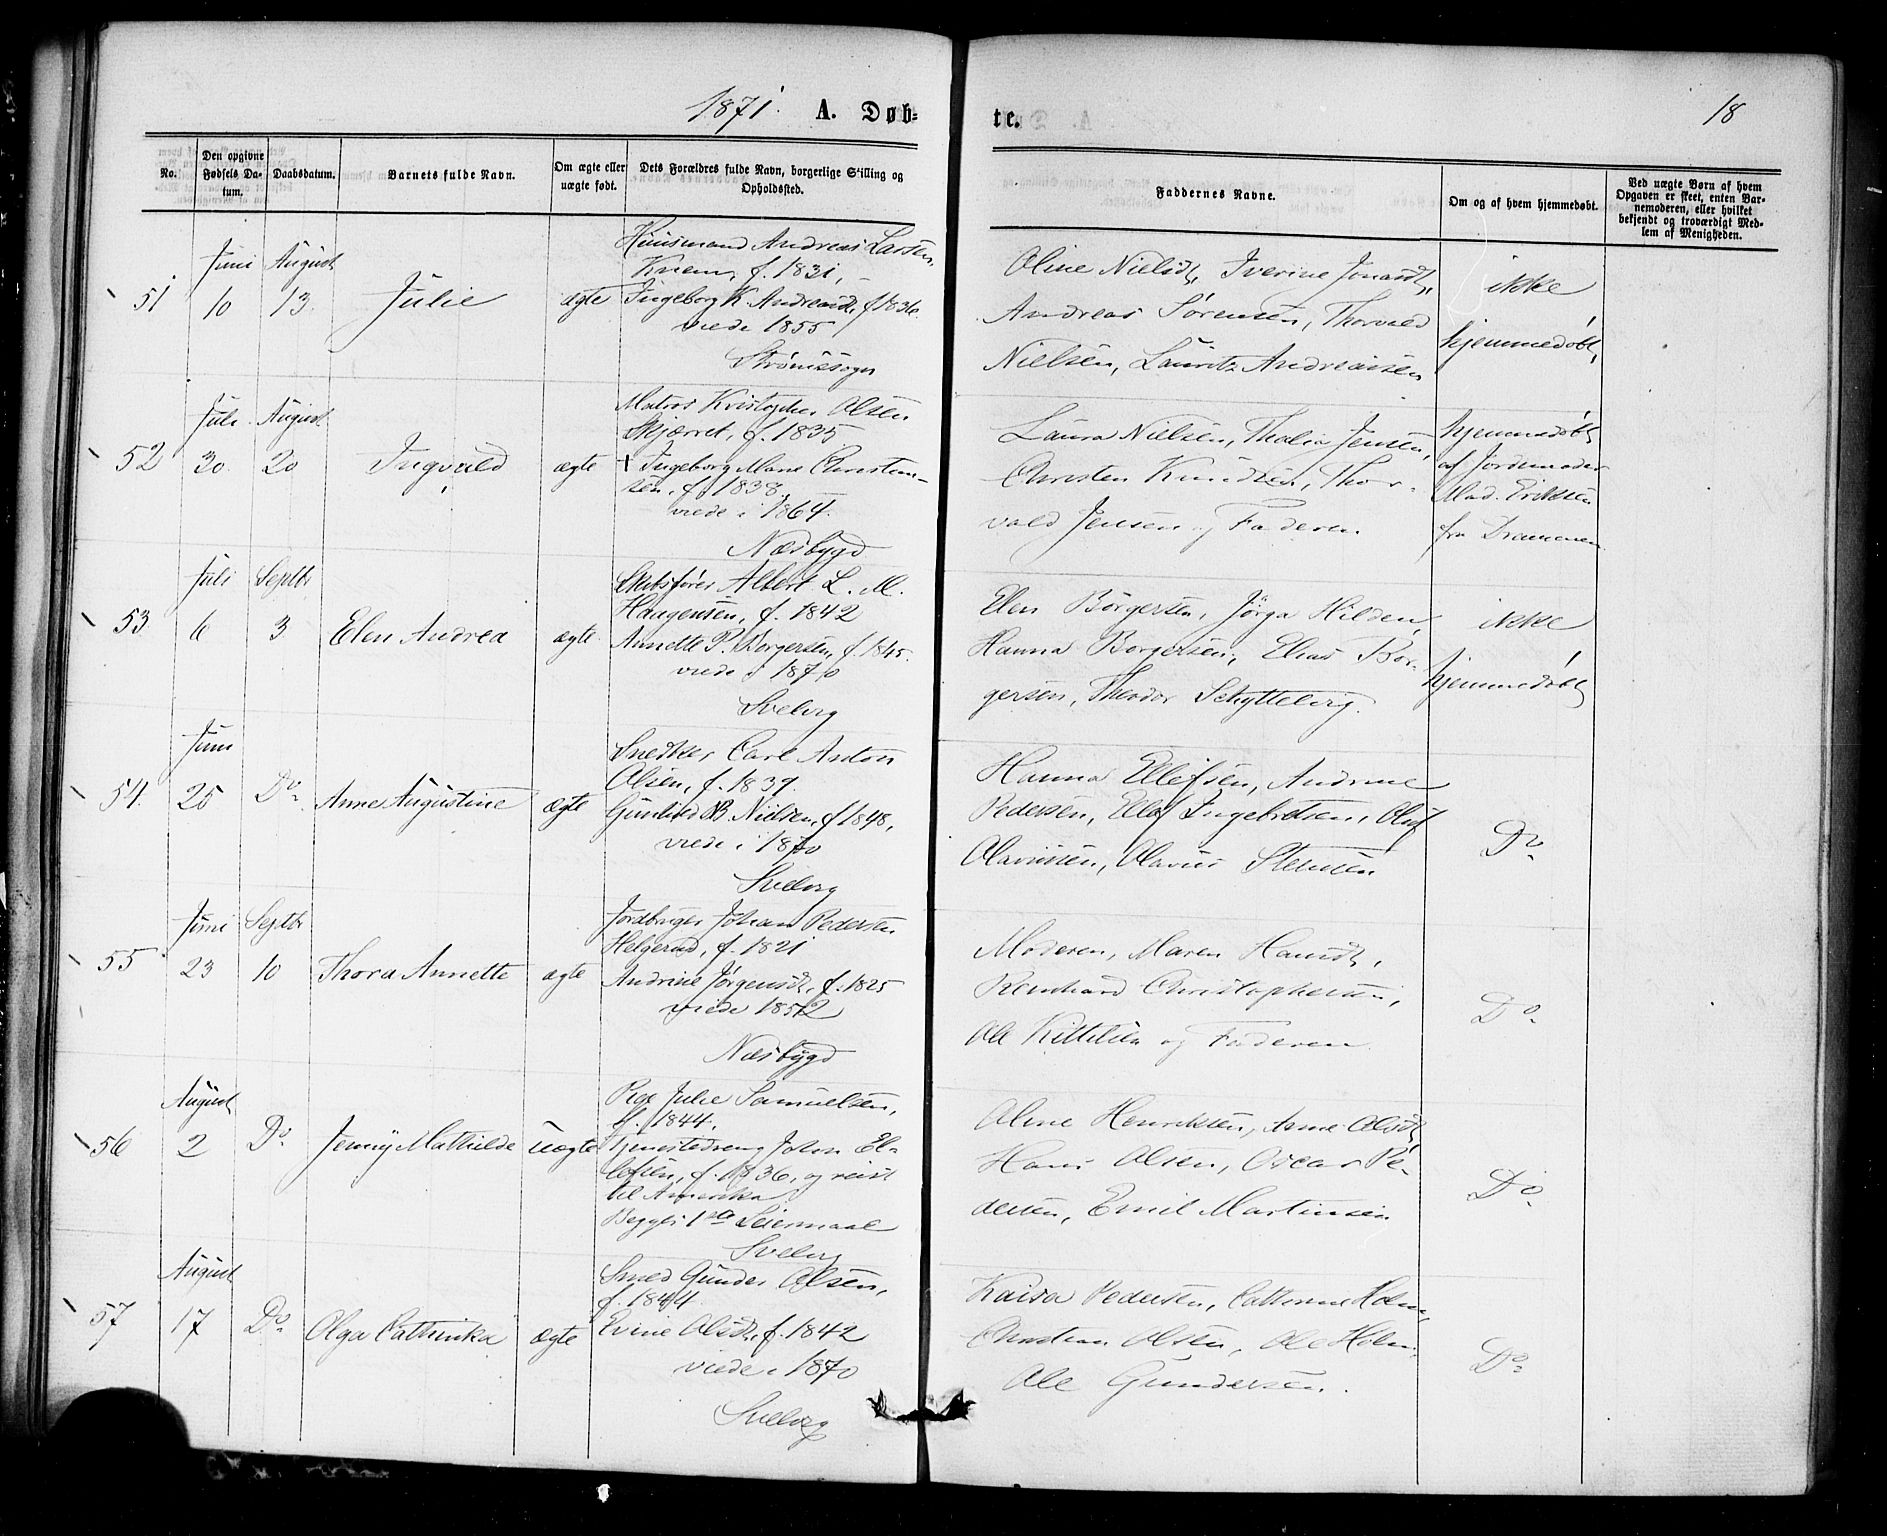 1871. A. Døb-
te.
18
No.
Den opgivne Fødsels Da-
tum.
Daabsdatum.
Barnets fulde Navn.
Om ægte eller
uægte født.
Dets Forældres fulde Navn, borgerlige Stilling og
Opholdssted.
Faddernes Navne.
Om og af hvem hjemmedøbt.
Ved uægte Børn af hvem
Opgaven er skeet, enten Bar-
nemoderen, eller hvilket
bekjendt og troværdigt Med-
lem af Menigheden.
51
Juni
10
August
13
Julie
ægte
Huusmand Andreas Larsen
Knem, f. 1831,
Ingeborg K. Andreasdt, f 1836.
viede 1855
Strømssogn
Oline Nielsdt, Iverine Jonasdt,
Andreas Sørensen, Thorvald
Nielsen, Lauritz Andreassen
ikke
hjemmedøbt
52
Juli
30
August
20
Ingvald
ægte
Matros Kristopher Olsen
Skjærret, f. 1835
+ Ingeborg Marie Christen-
sen, f. 1838.
viede i 1864.
Næsbygd
Laura Nielsen, Thalia Jensen,
Christen Knudsen, Thor-
vald Jensen og Faderen
hjemmedøbt
af Jordemoder
Mad. Eriksen
fra Drammen
53
Juli
6
Septbr
3
Elen Andrea
ægte
Skibsfører Albert L. M.
Haagensen, f. 1842
Annette P. Borgersen, f. 1845.
viede i 1870
Svelvig
Elen Børgersen, Jørga Hilden,
Hanna Borgersen, Elias Bor-
gersen, Theodor Schyttelvig.
ikke
hjemmedøbt
54.
Juni
25
Do
Anne Augustine
ægte
Snedker Carl Anton
Olsen, f. 1839.
Gunhild B. Nielsen, f 1848,
viede i 1870
Svelvig
Hanna Ellefsen, Andrine
Pedersen, Ellef Ingebretsen, Oluf
Olavussen, Olavus Stensen
Do
55
Juni
23
Septbr
10
Thora Annette
ægte
Jordbruger Johan Pedersen
Helgerud, f. 1821
Andrine Jørgensdt, f. 1825
viede 1852
Næsbygd
Moderen, Maren Hansdt,
Reinhard Christophersen,
Ole Kittilsen og Faderen
Do
56
August
2
Do
Jenny Mathilde
uægte
Pige Julie Samuelsen,
f. 1844.
Tjenestedreng Johan El-
lefsen, f. 1836, og reist
til Amerika
Begges 1ste Leiermaal
Svelvig
Oline Henriksen, Anne Olsdt,
Hans Olsen, Oscar Pe-
dersen, Emil Martinsen
Do
57
August
17
Do
Olga Cathinka
ægte
Smed Gunder Olsen,
f. 1844.
Evine Olsdt, f. 1842
viede i 1870
Svelvig
Kaisa Pedersen, Cathrine Holm,
Christian Olsen, Ole Holm,
Ole Gundersen.
Do